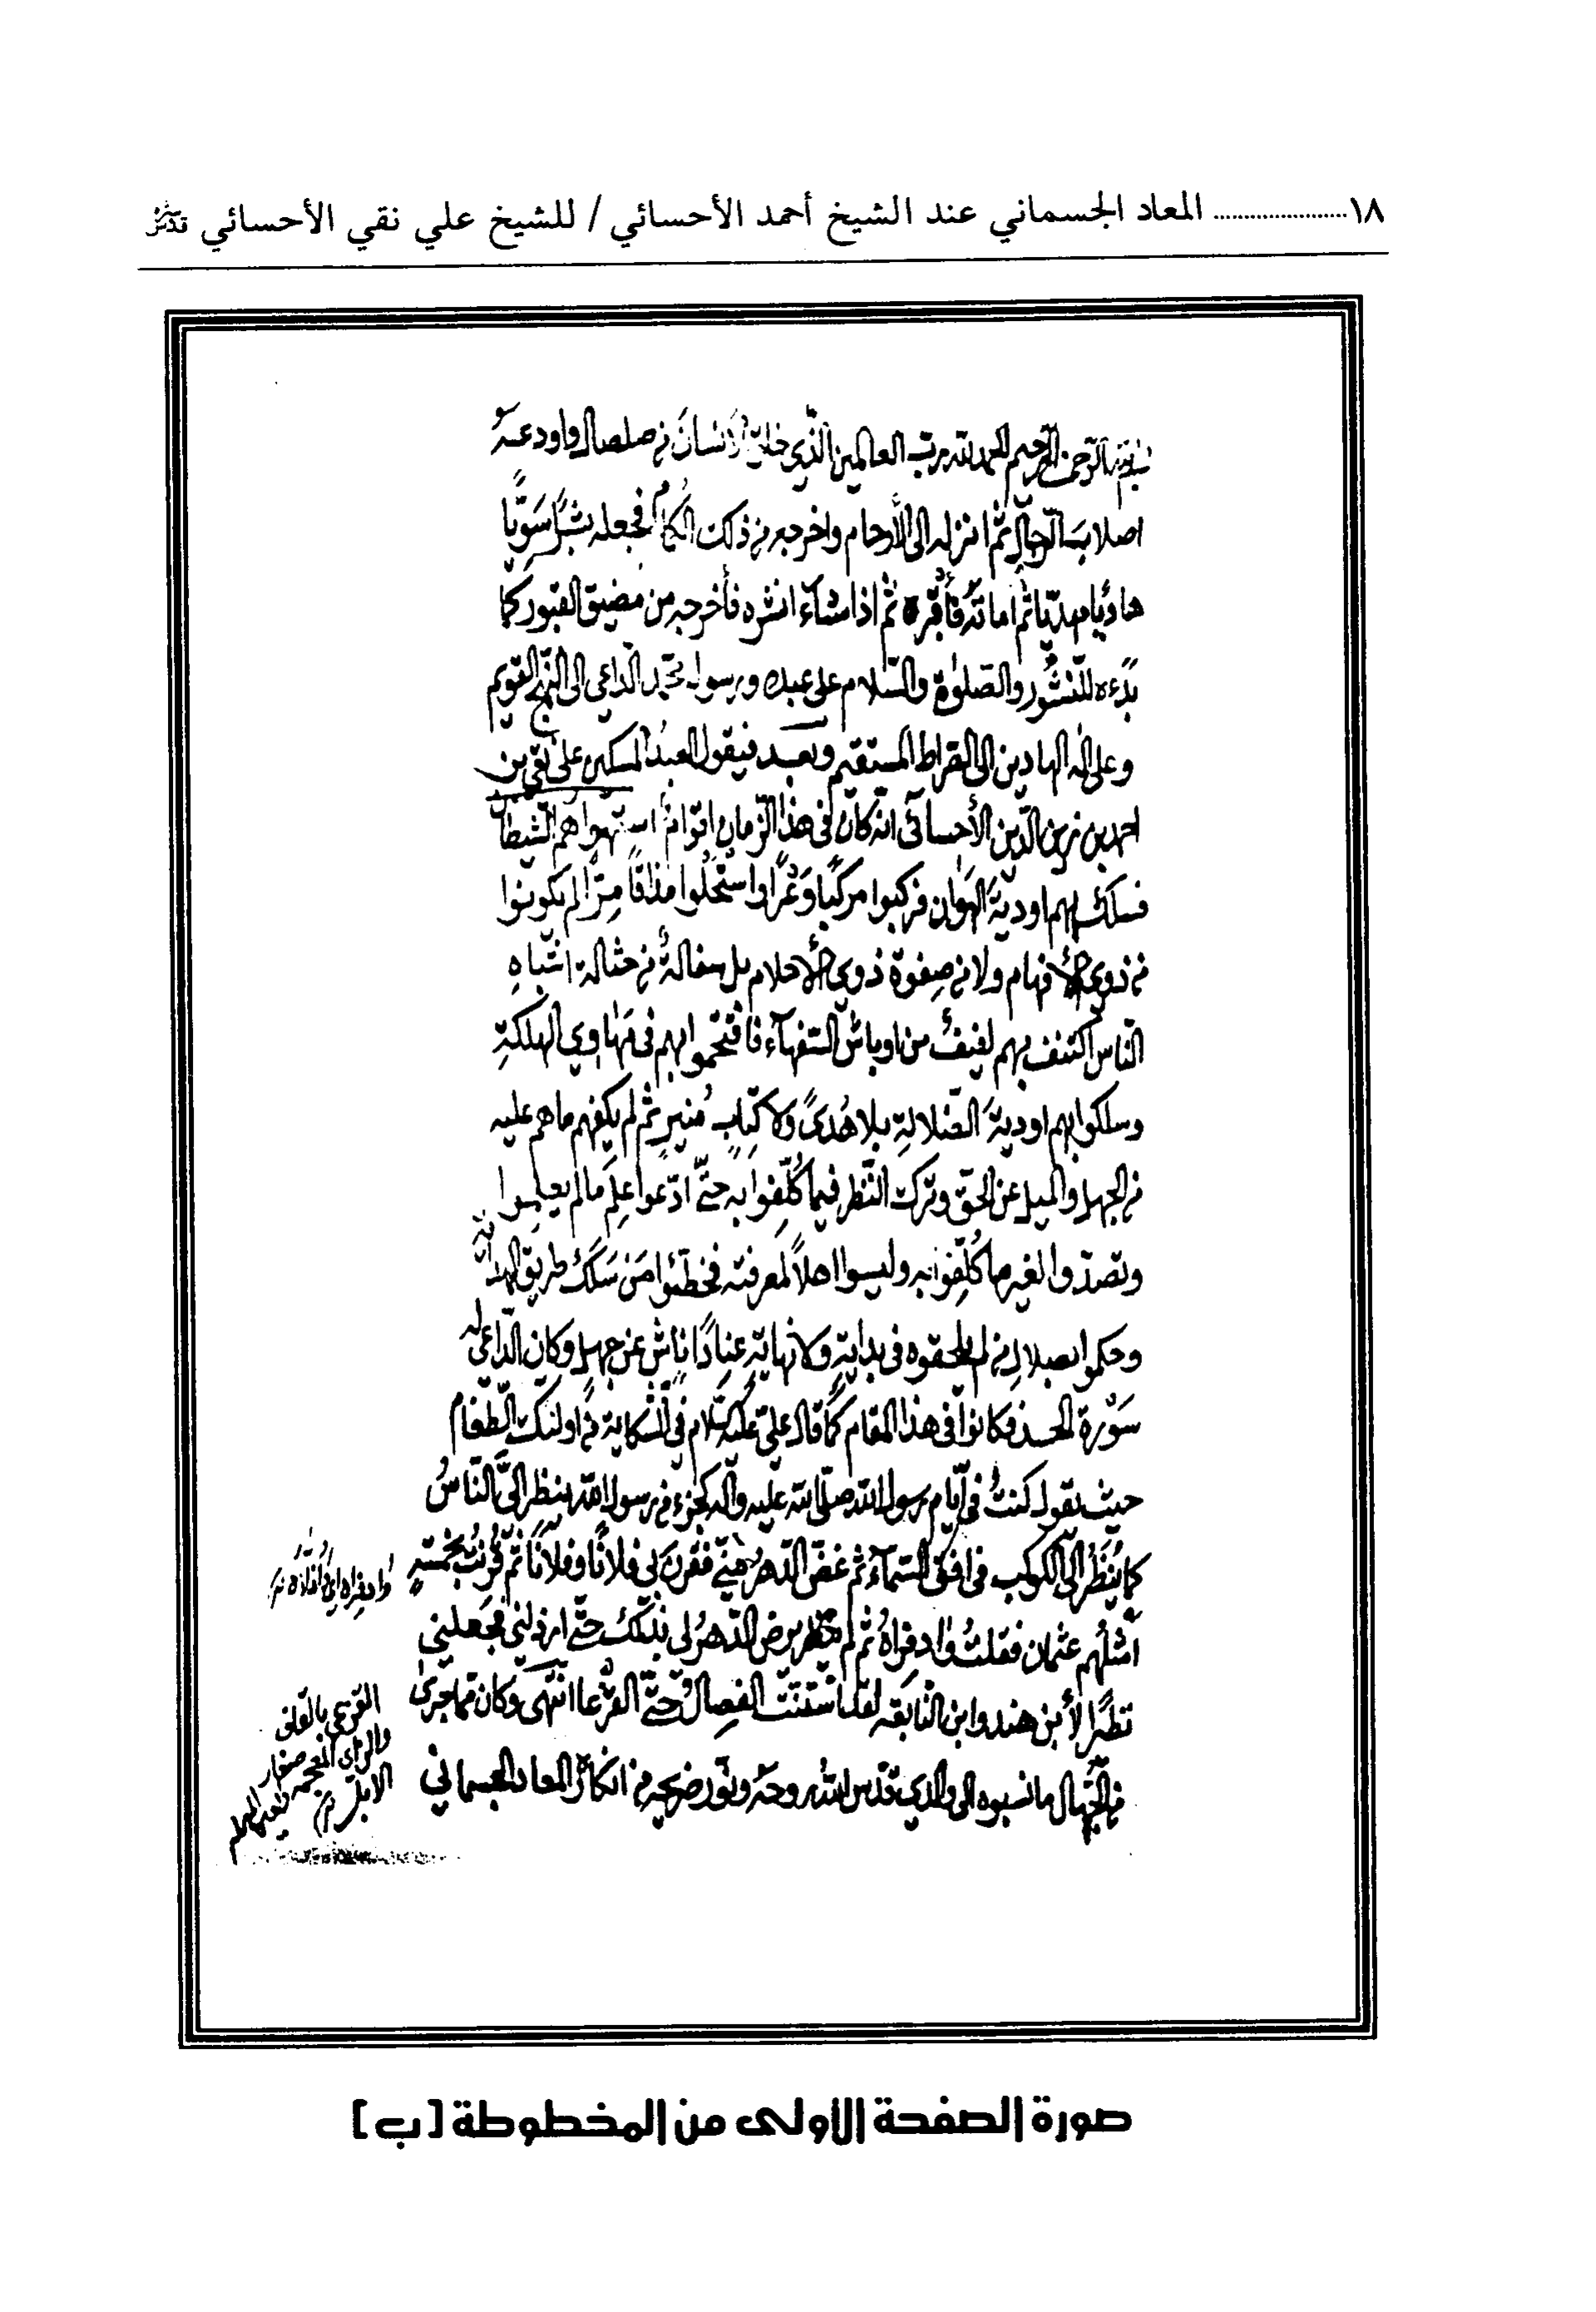 ١٨ ...................... المعاد الجسماني عند الشيخ أحمد الأحسائي / للشيخ علي نقي الأحسائي
بسم الله الرحمن الرحيم الحمد لله رب العالمين الذي خلق الانسان من صلصال واودعه
اصلاب الرجال ثم انزله الى الأرحام واخرجه من ذلك فجعله بشراً سويّاً
ثم اماته فأقبره ثم اذا شاء انشره فأخرجه من مضيق القبور كما
بدءه للنشور والصلوة والسلام على عبده ورسوله محمد الداعي الى النهج القويم
وعلى اله الهادين الى الصراط المستقيم وبعد فيقول العبد المسكين علي نقي بن
احمد بن زين الدين الأحسائي انه كان في هذا الزمان اقوام استهواهم الشيطان
فسلك بهم اودية الهوان فركبوا مركباً وعراً واستحلوا مذاقاً مرّاً لم يكونوا
من ذوي الأفهام ولا من صفوة ذوي الأحلام بل سفالة من حثالة اشباه
الناس اكتنف بهم لفيف من اوباش السفهاء فاقتحموا بهم في مهاوي الهلكة
وسلكوا بهم اودية الضلالة بلا هدىً ولا كتاب منير ثم لم يكفهم ما هم عليه
من الجهل والميل عن الحق وترك النظر فيما كلّفوا به حتّى ادّعوا علم ما لم يعلموا
وتصدّوا لغير ما كلّفوا به وليسوا اهلاً لمعرفته فخطّئوا من سلك طريق الهداية
وحكموا بضلال من لم يلحقوه في بداية ولا نهاية عناداً ناشٍ عن جهل وكان الداعي له
سورة الحسد فكانوا في هذا المقام كما قال علي عليه السلام في الشكاية من اولئك الطغام
حيث يقول كنت في أيام رسول الله صلى الله عليه واله كجزء من رسول الله ينظر اليّ الناس
كما يُنظر الى الكوكب في افق السماء ثم غضّ الدهر منّي فقرن بي فلاناً وفلاناً ثم قرنت بخمسة
امثلهم عثمان فقلت وا ذفراه ثم لم يرض الدهر لي بذلك حتّى ارذلني فجعلني
نظراً لأبن هند وابن النابغة لقد استنّت الفصال حتّى القرعا انتهى وكان مما جرى
من الجهال ما نسبوه الى والدي قدس الله روحه ونور ضريحه من انكار المعاد الجسماني
القرعى بالقاف
صغار
الابل
صورة الصفحة الأولى من المخطوطة [ب]